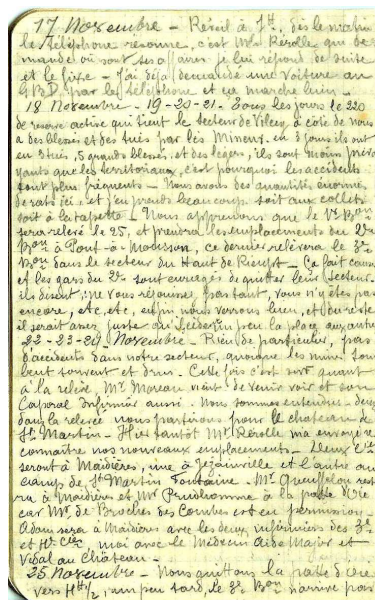 17 Novembre - Réveil à 7h, dès le matin
le téléphone résonne, c'est Mr Rérolle qui de
mande où sont ses affaires je lui répond de suite
et le fixe - J'ai déjà demandé une voiture au
G.B.D. par le téléphone et ça marche bien -
18 Novembre - 19-20-21 - Tous les jours le 220
de réserve active qui tient le secteur de Vilcey à côté de nous
a des blessés et des tués par les Mineur. en 3 jours ils ont
eu 3 tués, 5 grands blessés, et des légers, ils sont moins prévo
yants que les territoriaux, c'est pourquoi les accidents
sont plus fréquents - Nous avons des quantités énormes
de rats ici, et j'en prends beaucoup soit aux collets
soit à la tapette - Nous apprenons que le 1er Bon
sera relevé le 25, et prendra les emplacements du 2me
Bon à Pont-à-Mousson, ce dernier relèvera le 3me
Bon dans le secteur du Haut de Rieupt - Ça fait causer
et les gars du 2me sont enragés de quitter leur secteur.
ils disent: ne vous réjouissez pas tant, vous n'y êtes pas
encore, etc, etc, enfin nous verrons bien, et du reste
il serait assez juste de céder un peu la place aux autres
22-23-24 Novembre - Rien de particulier, pas
d'accidents dans notre secteur, quoique les mines tom
bent souvent et drus. Cette fois c'est sûr quant
à la relève Mr Moreau vient de venir voir et son
Caporal Infirmier aussi. Nous sommes entendus - 
dans la relève nous partirons pour le chateau de
St Martin - Hier tantôt Mr Rérolle m'a envoyé re
connaître nos nouveaux emplacements - Deux Cies
seront à Maidières, une à Jezainville et l'autre au
camp de St Martin Fontaine - Mr Queuffelou rest
ra à Maidières et Mr Prudhomme à la poste d'ici
car Mr de Broches des Combes est en permission -
Adam sera à Maidières avec les deux infirmiers des 3e
et 4e Cies moi avec le Médecin Aide Major et
Vidal au Château -
25 Novembre - Nous quittons la poste d'ici
vers 4h 1/2, un peu tard, le 3e Bon n'arrive pas